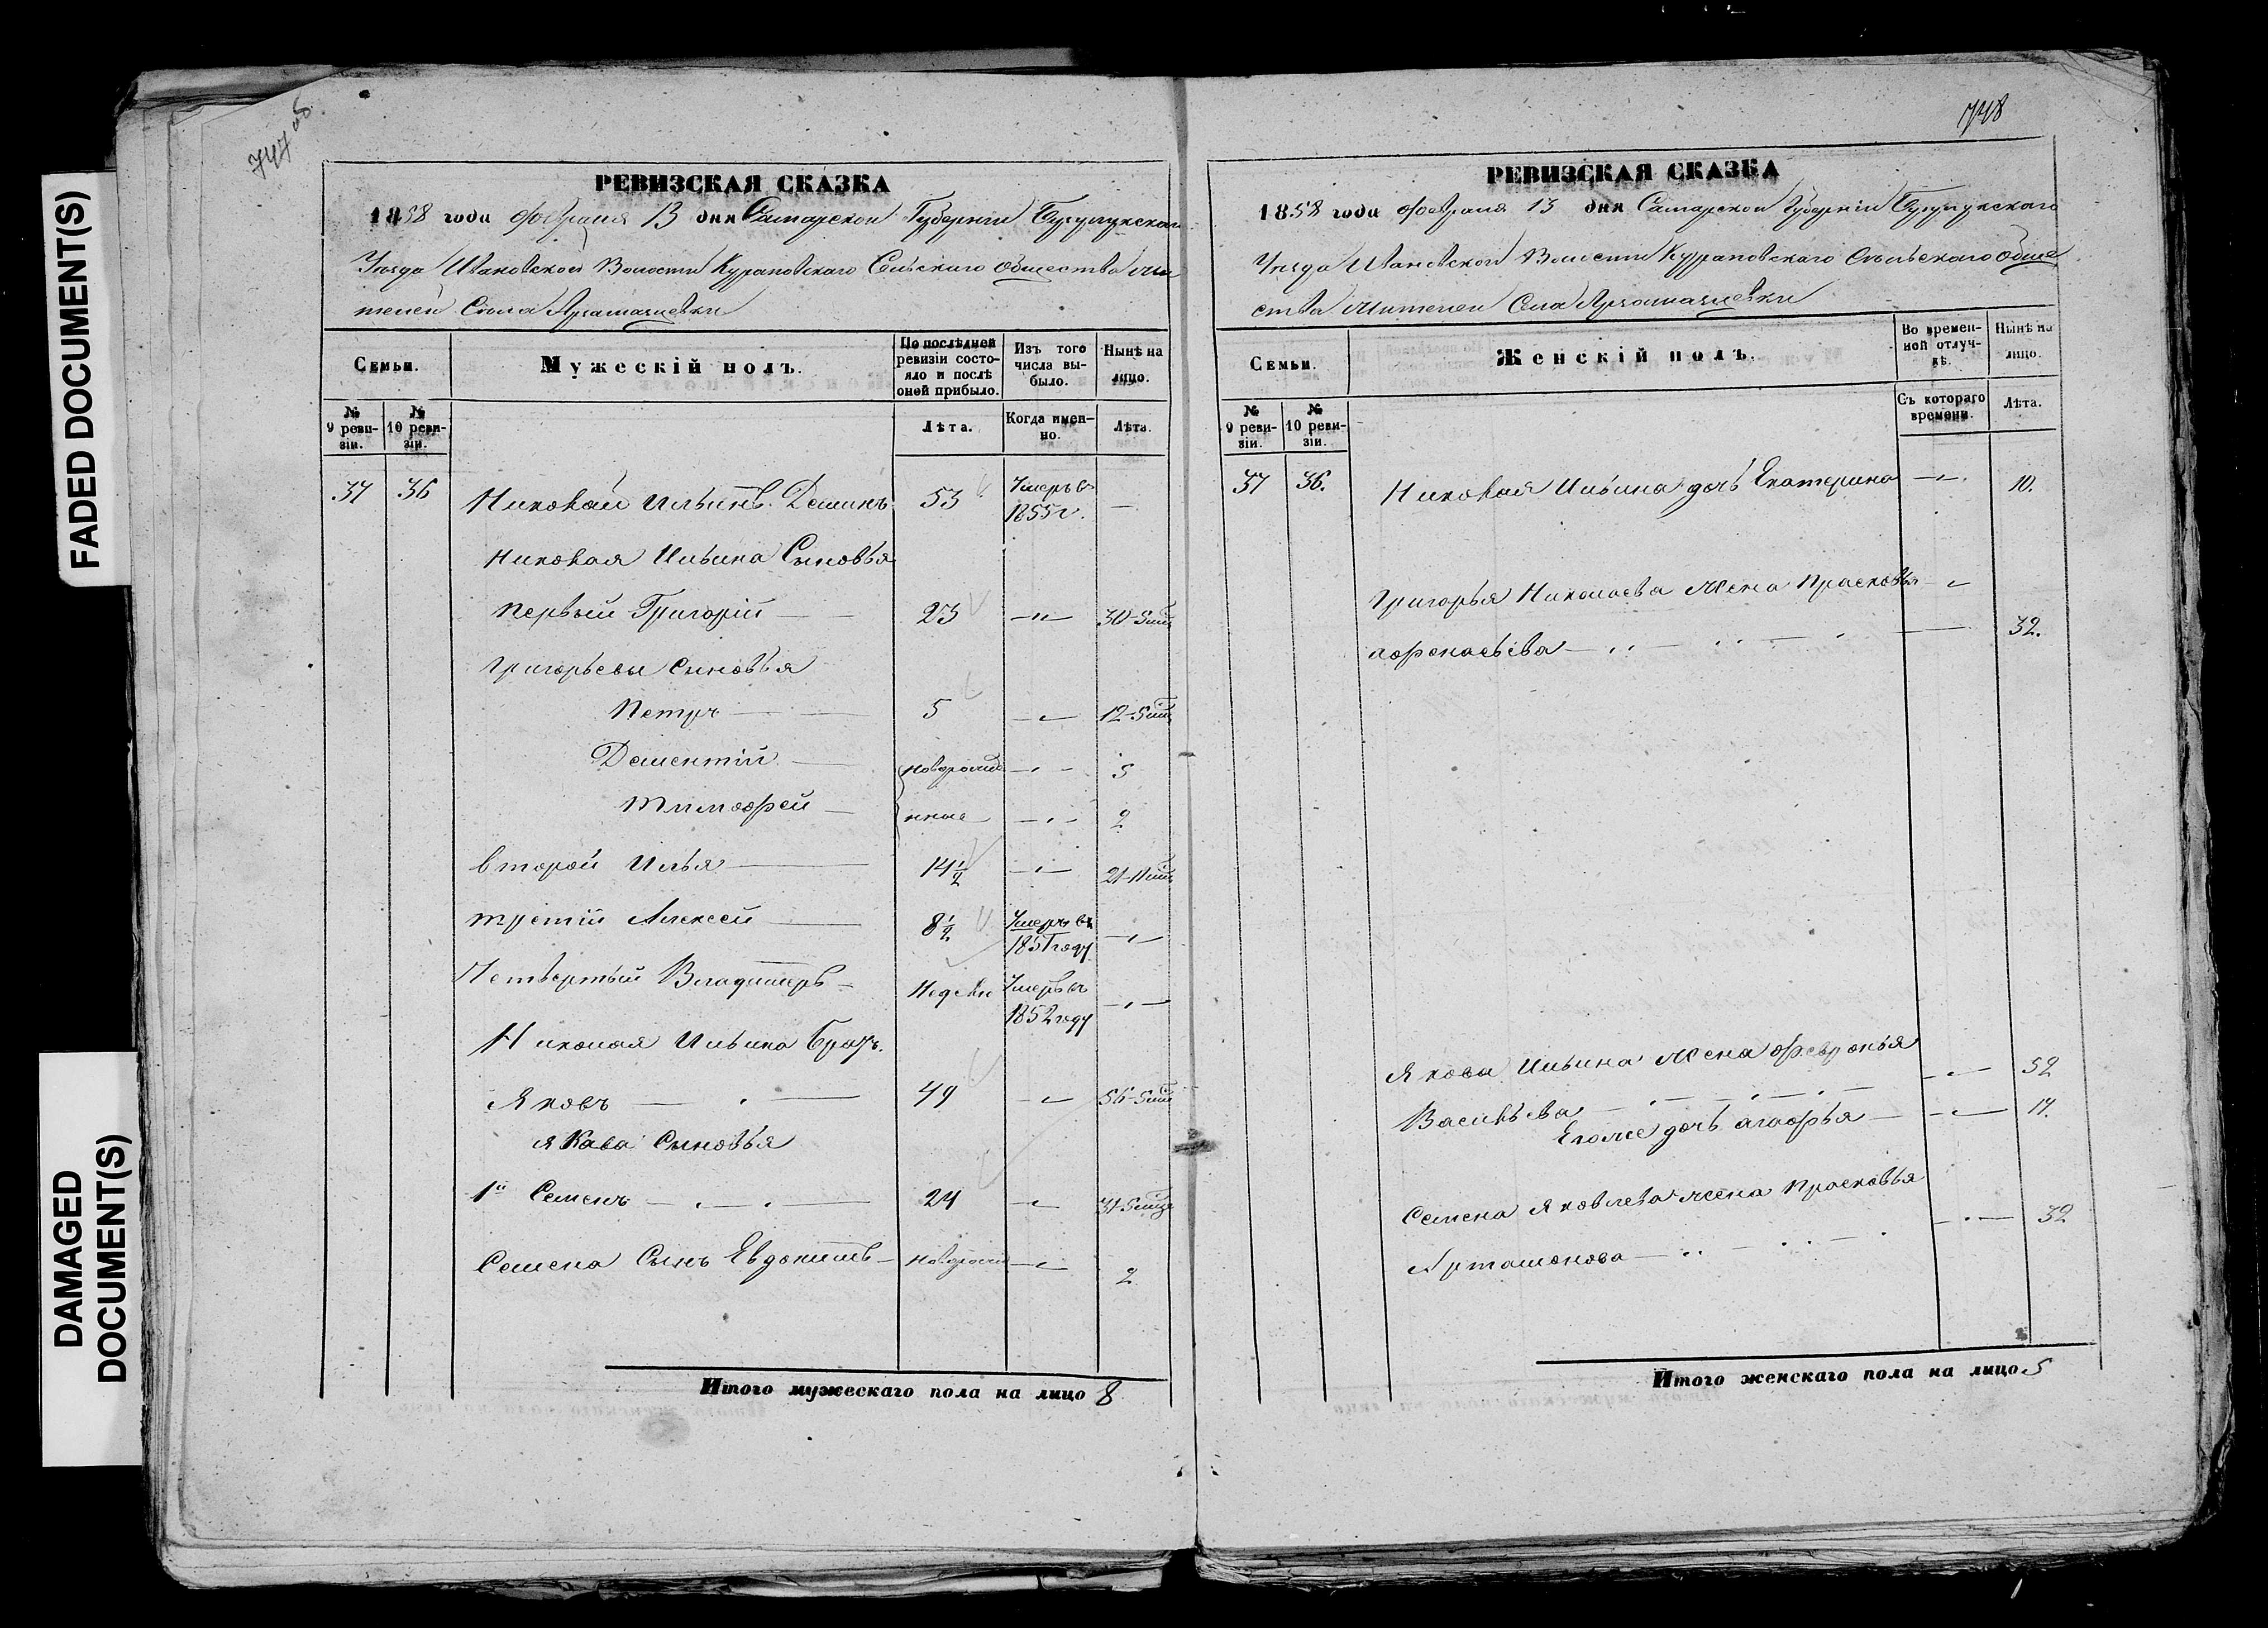 FADED DOCUMENT(S)
DAMAGED
DOCUMENT(S)
747 об
РЕВИЗСКАЯ СКАЗКА
1858 года февраля 13 дня Самарской Губерніи Бузулукскаго
Уезда Ивановской Волости Курановскаго Сельскаго общества жи
телей Села
Семьи.
Мужескій полъ.
По послѣдней ревизіи состояло и послѣ оной прибыло.
Изъ того числа выбыло.
Нынѣ на лицо.
№ 9 ревизіи.
№ 10 ревизіи.
Лѣта.
Когда именно.
Лѣта.
37 36 Николай Ильинъ Деминъ 53 Умеръ в 1855 г. —
Николая Ильина Сыновья
первый Григорій — — 23 — " — 30-5 мц
Григорьевы сыновья
Петръ — — 5 — " — 12-5 мц
Дементій — новорожде — " — 5
Тимофей — нные — " — 2
второй Илья — 14 1/2 — " — 21-11 мц
третій Алексей — 8 1/2 Умеръ въ 1851 году — " —
Четвертый Владимеръ — Недели Умеръ въ 1852 году — " —
Николая Ильина братъ.
Яковъ — " — 49 — " — 56-5 мц
Якова Сыновья
1й Семенъ — " — " — 24 — " — 31-5 мце
Семена Сынъ Евдокимъ — новорож — " — 2
Итого мужескаго пола на лицо 8
748
РЕВИЗСКАЯ СКАЗКА
1858 года февраля 13 дня Самарской Губерніи Бузулукскаго
Уезда Ивановской Волости Курановскаго Сельскаго обще
ства Жителей Села
Семьи.
Женскій полъ.
Во временной отлучкѣ.
Нынѣ на лицо.
№ 9 ревизіи.
№ 10 ревизіи.
Съ котораго времени.
Лѣта.
37 36. Николая Ильина дочь Екатерина — " — 10.
Григорья Николаева жена Прасковья — "
афонасьева — " — " — " — 32.
Якова Ильина жена февронья
Васильева — " — " — — " — 52
Егоже дочь агафья — — " — 17.
Семена Яковлева жена Прасковья
Артамонова — " — " — " — " — 32
Итого женскаго пола на лицо 5